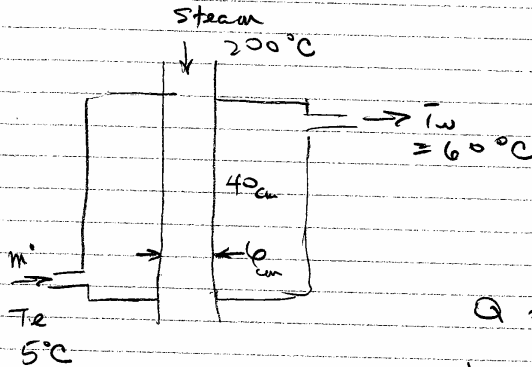 Steam
200°C
→ Tw
= 60°C
40 cm
6 cm
ṁ
Te
5°C
Q